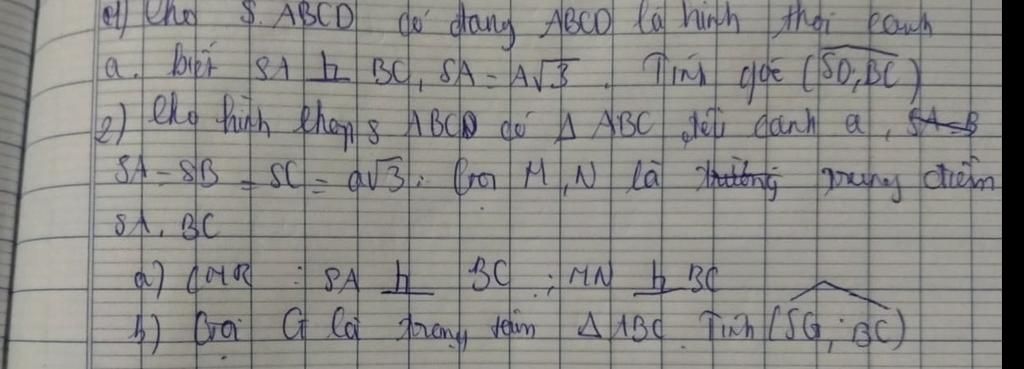 1) Cho S.ABCD có đang ABCD là hình thoi canh
a. biết SA ⊥ BC, SA = A√3. Tính góc (SD,BC)
2) Cho hình chop S ABCD có Δ ABC đều canh a, SA=B
SA = SB = SC = a√3. Gọi M, N là trường trung điểm
SA, BC
a) CMR : SA ⊥ BC ; MN ⊥ BC
b) Gọi G là trọng tâm Δ ABC. Tính (SG; BC)